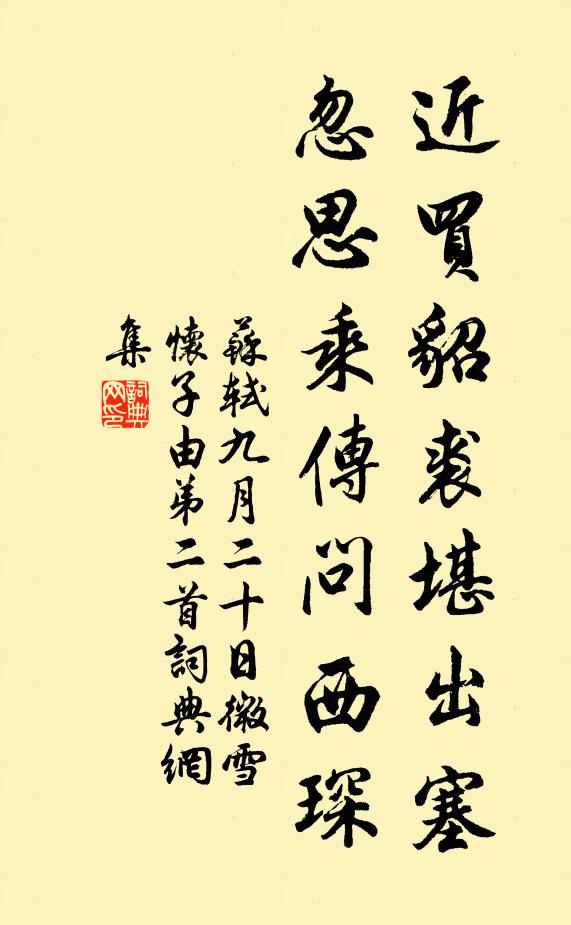 近買貂裘堪出塞
忽思乘傳問西琛
蘇軾九月二十日微雪
懷子由弟二首詞典網
集
詞典
网印